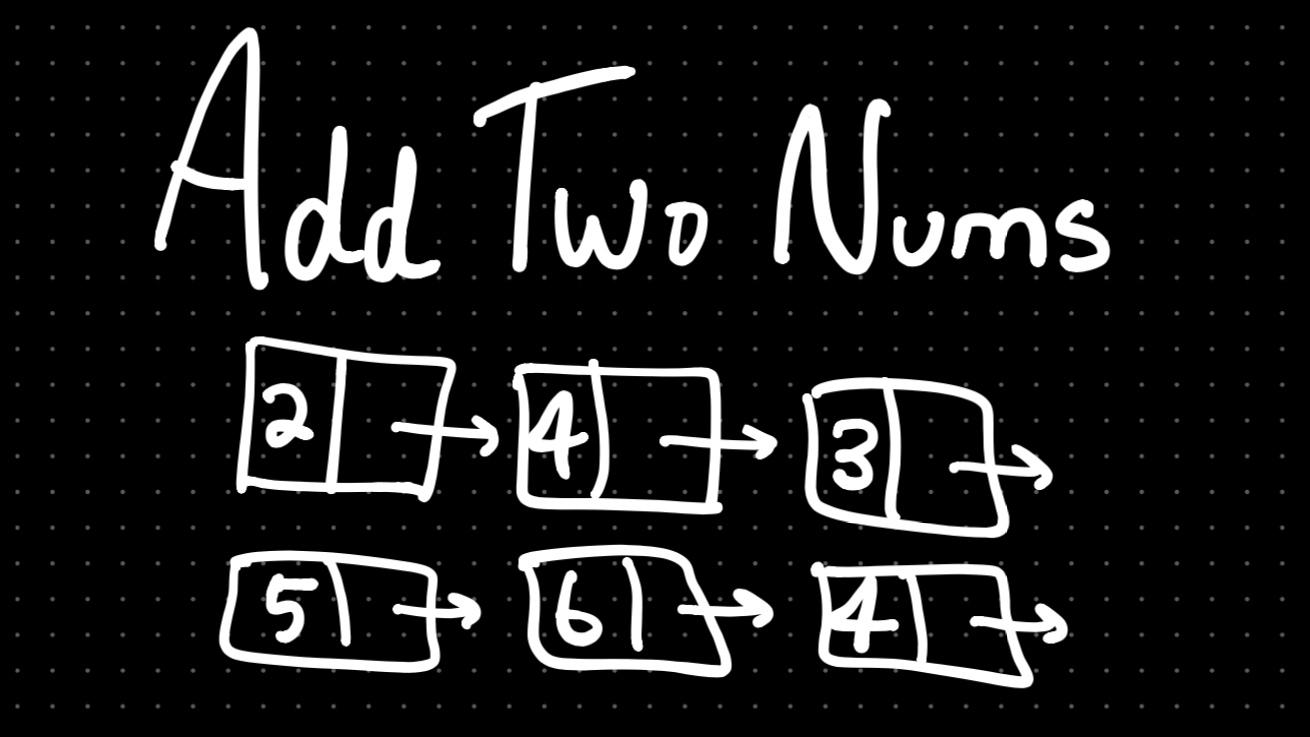 Add Two Nums
2 4 3
5 6 4